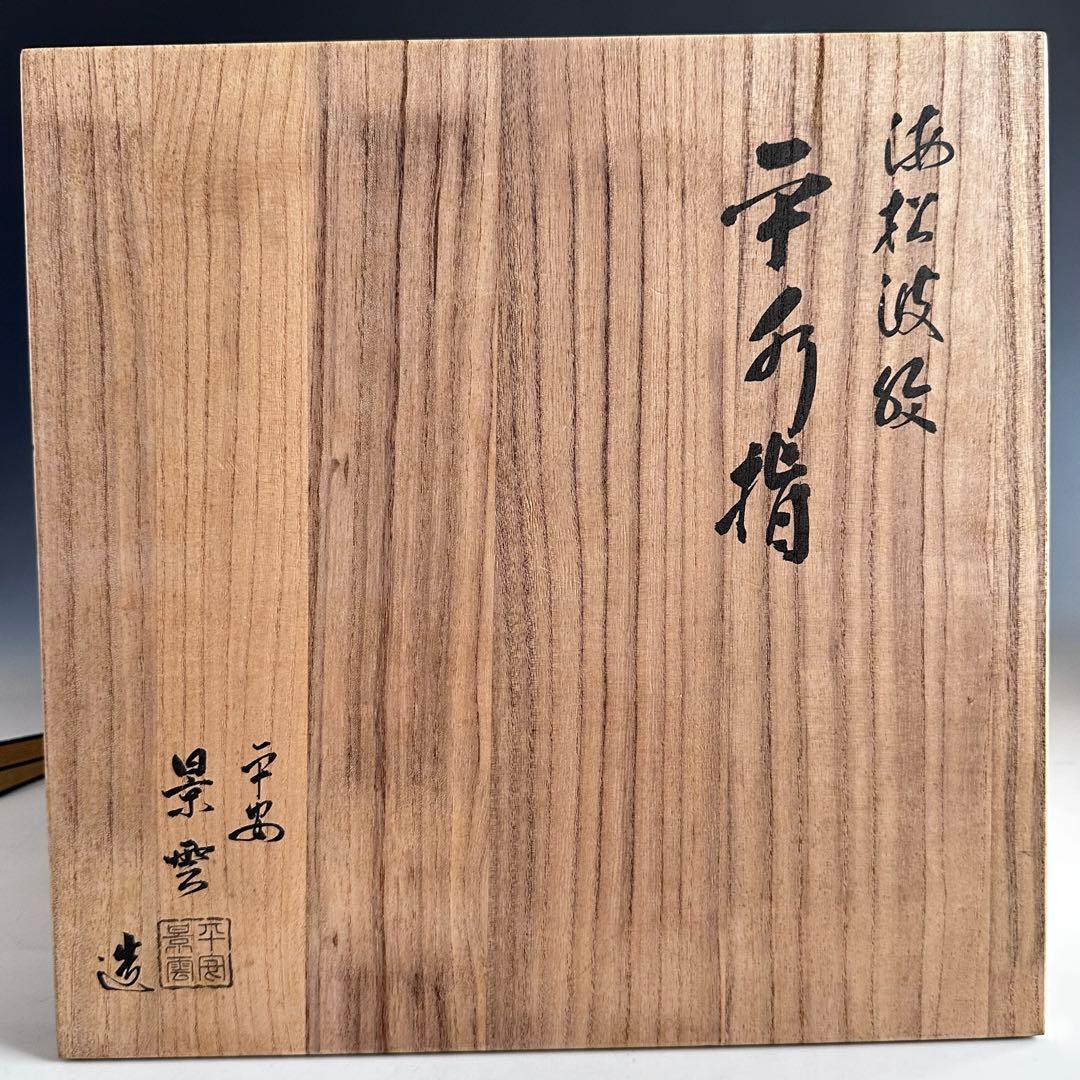 海松波絵
平水指
平安
景雲
平安
景雲
造